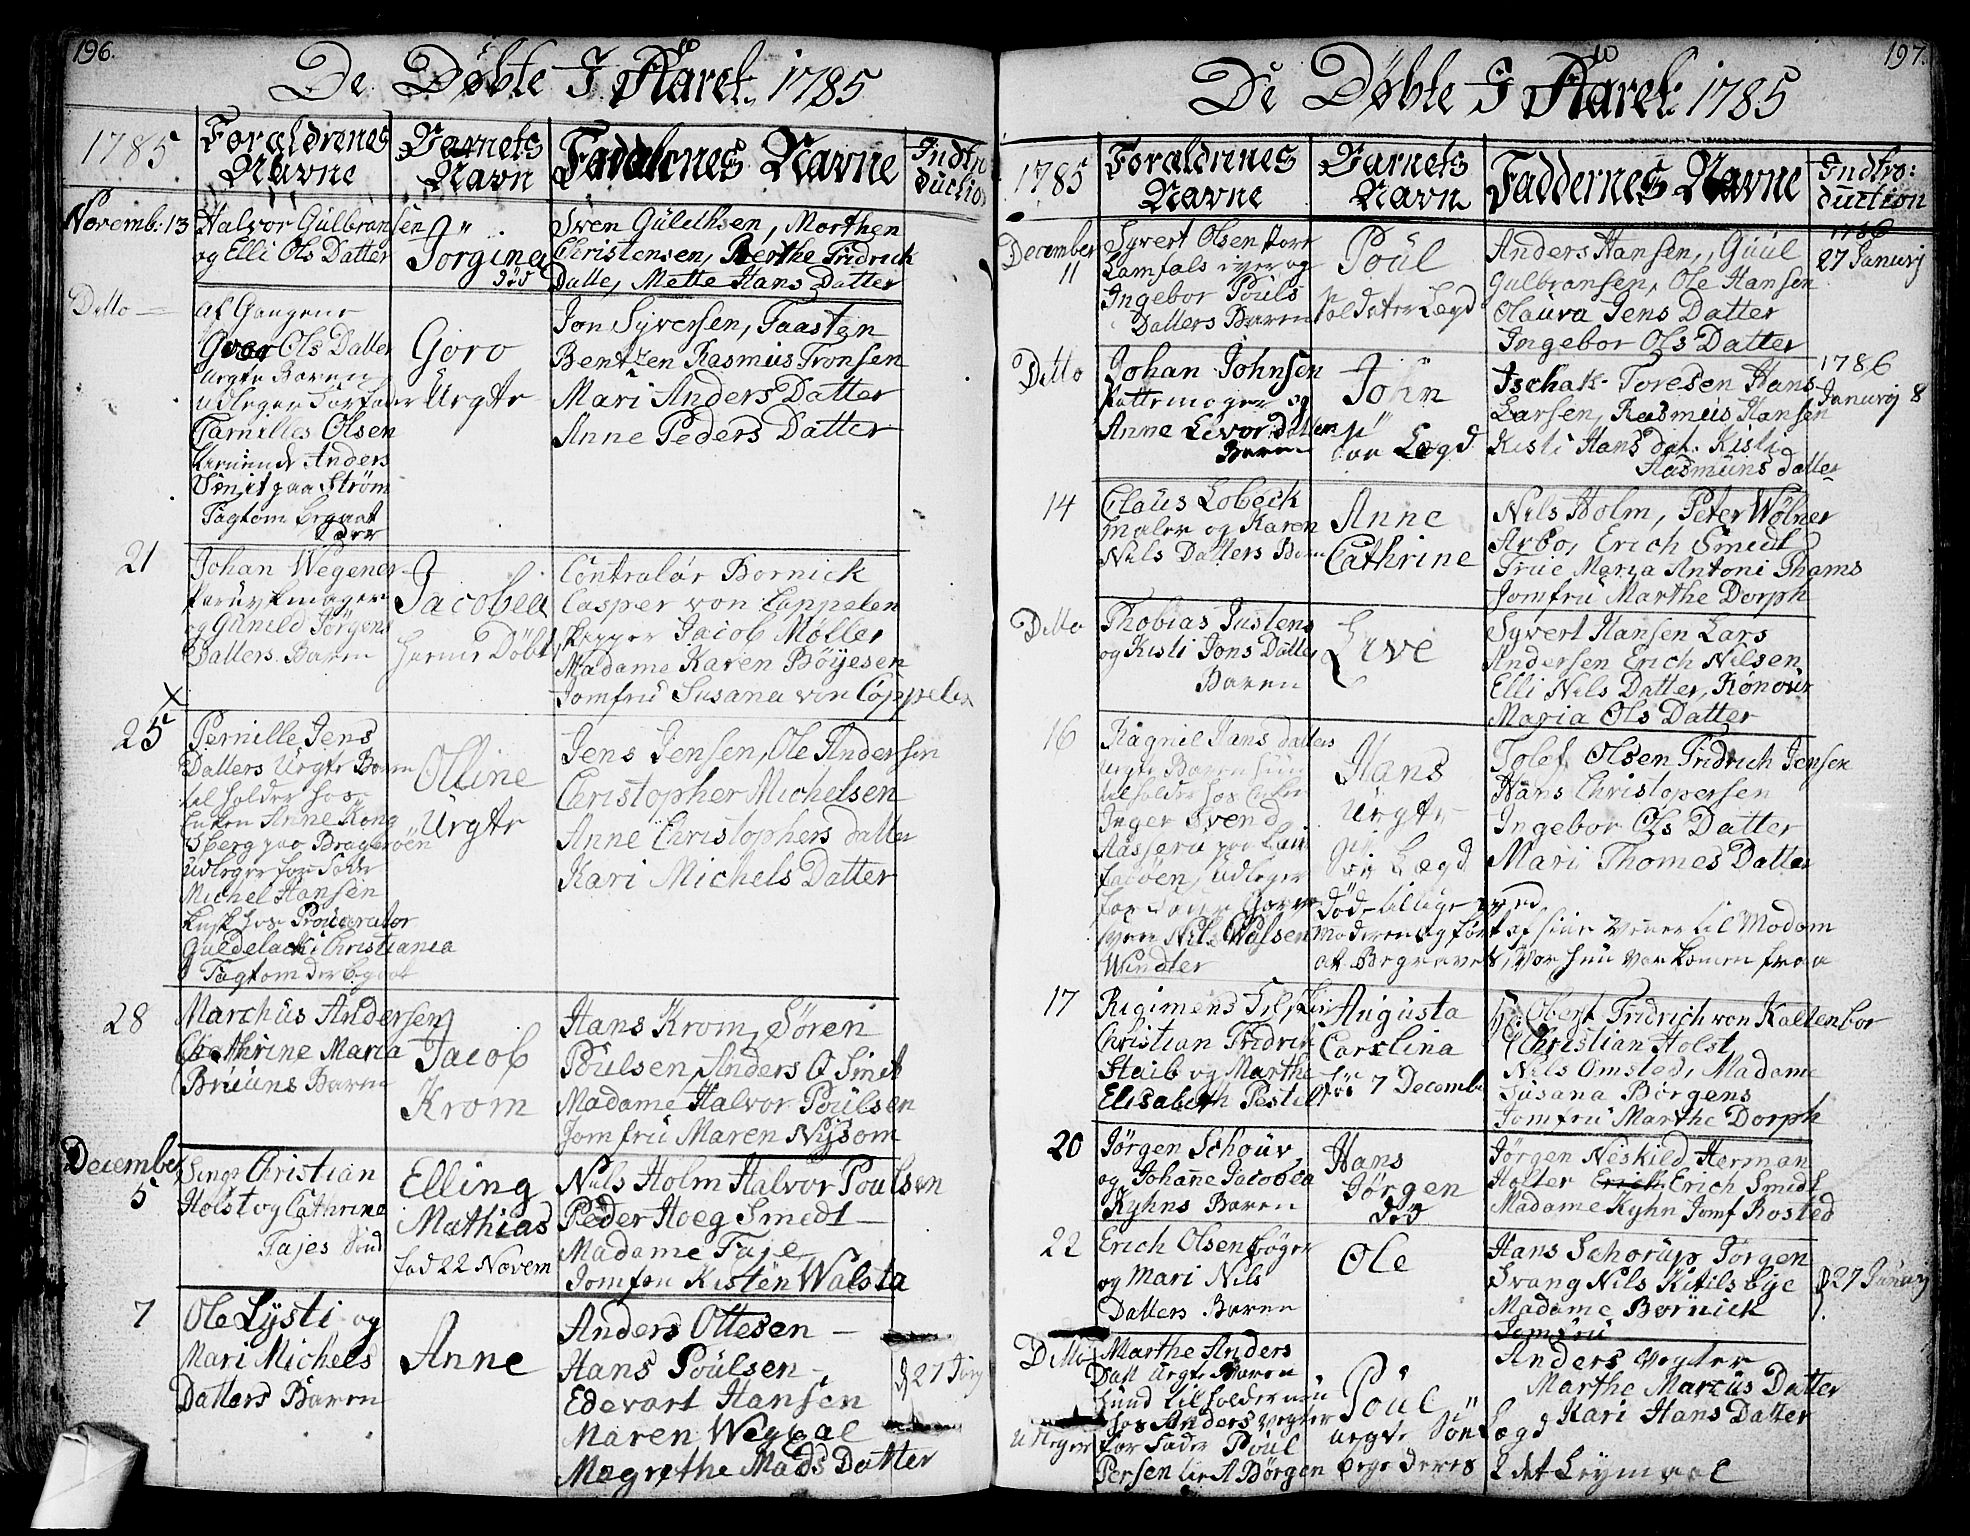 196.
De Døbte I Aaret 1785
1785
Forældrenes
Navne
Barnets
Navn
Faddernes Navne
Indtro
duction
Novemb: 13
Halvor Gulbransen
og Elli Ols Datter
Jorgina
død
Sven Gulethsen, Morthen
Christensen, Berthe Fridrich
Datte, Mette Hans Datter
Ditto
af Gangene
Goro Ols Datter
Urgte Baren
udleger
Olsen
Anders
Smit paa Strøm
Goro
Urgte
Jon Syversen, Taasten
Bentzen Rasmus Tronsen
Mari Anders Datter
Anne Peders Datter
21
Johan Wegener
Paruckmager
og Gunild Jörgens
Datters Baren
Jacobea
Døbt
Contralør Bornick
Casper von Cappelen
Skipper Jacob Møller
Madame Karen Böyesen
Jomfru Susana von Cappelen
25
Pernille Jens
Datters Urgte Baren
til holder hos
Enken Anne Kong
Sberg paa Bragernöen
udleger for Fader
Michel Hansen
kusk hos Procurator
Guldelack i Christiania
Olline
Urgte
Jens Jensen, Ole Andersen
Christopher Michelsen
Anne Christophers datter
Kari Michels Datter
28
Marchus Andersen
Chathrine Maria
Bruuns Baren
Jacob
Krom
Hans Krom, Sören
Poulsen, Anders O Smit
Madame Halvor Poulsen
Jomfru Maren Nysom
December
5
Sengr Christian
Holst og Cathrine
Fajes Sønd
Elling
Mathias
fød 22 Novem
Nils Holm Halvor Poulsen
Peder Hoeg Smedt
Madame Faje
Jomfru Kisten Walsta
7
Ole Lysti og
Mari Michels
Datters Baren
Anne
Anders Ottesen
Hans Poulsen
Edevart Hansen
Maren Weggel
Magrethe Mads Datter
d 27
197.
De Døbte I Aaret 1785
1785
Forældrenes
Navne
Barnets
Navn
Faddernes Navne
Indtro:
duction
December
11
Syvert Olsen
og
Ingebor Pouls
Datters Baren
Poul
Soldater Lægd
Anders Hansen, Guul
Gulbransen, Ole Hansen
Olaura Jens Datter
Ingebor Ols Datter
1786
27 Januarj
Ditto
Johan Johnsen
Pottemager og
Anne Levor Datters
Baren
John
Lægd
Ischak Toresen Hans
Larsen, Rasmus Hansen
Kisti Hans dat. Kisti
Rasmuns datter
1786
Januarj 8
14
Claus Lobeck
maler og Karen
Nils Datters Baren
Anne
Cathrine
Nils Holm, Peter Wølner
Arbo, Erich Smedt
Frue Maria Antoni Thams
Jomfru Marthe Dorph
Ditto
Thobias Justens
og Kisti Jons Datter
Baren
Live
Syvert Hansen Lars
Andersen Erich Nilsen
Elli Nils Datter, Rønour
Maria Ols Datter
16
Ragnil Hans datters
Urgte Baren hun
tilholder hos Enken
Inger Svend
udleger
for
Nils Wolsen
Windler
Hans
Urgte
Lægd
Død tillige med
Moderen og ført af sine Vener til Modom
at Begraves, Vor hun var komen fraa
Tolef Olsen Fridrich Jensen
Hans Christopersen
Ingebor Ols Datter
Mari Thomes Datter
17
Rigimends
Christian Fridrik
Staib og Marthe
Elisabeth Pestel
Augusta
Carolina
fød 7 Decembr
Hr Oberst Fridrich von Kaltenbor
Christian Holst
Nils Omsted, Madame
Susana Börgens
Jomfru Marthe Dorph
20
Jørgen Schouv
og Johane Jacobea
Kyhns Baren
Hans
Jørgen
død
Jørgen Neskild Herman
Holter Erich Erich Smedt
Madame Kyhn Jomf Rosted
22
Erich Olsen
og Mari Nils
Datters Baren
Ole
Hans Schorup Jørgen
Svang Nils Kitilsbye
Madame Bornick
Jomfru
d 27 Januarj
Ditto
Marthe Anders
Datt Urgte Baren
hund tilholder nu
hos Anders Vegter
for Fader Poul
Persen Børgen
udleger
Poul
urgte Søn Lægd
begge Deres 2det Leymaal
Anders Vegter
Marthe Marcus Datter
Kari Hans Datter